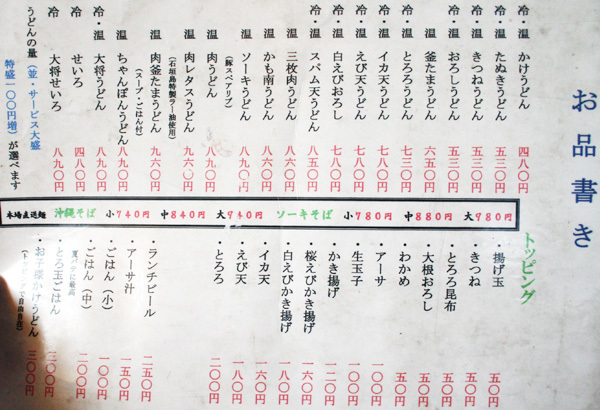 お品書き
冷・温 かけうどん 四八〇円
冷・温 たぬきうどん 五三〇円
冷・温 きつねうどん 五三〇円
冷・温 おろしうどん 五八〇円
冷・温 釜たまうどん 六五〇円
冷・温 とろろうどん 七三〇円
冷・温 イカ天うどん 七八〇円
冷・温 えび天うどん 七八〇円
冷・温 白えびおろし 七八〇円
冷・温 スパム天うどん 八五〇円
冷・温 三枚肉うどん 八六〇円
冷・温 かも南うどん 八六〇円
冷・温 ソーキうどん 八九〇円
(豚スペアリブ)
冷・温 肉うどん 八九〇円
冷・温 肉レタスうどん 九六〇円
(石垣島特製ラー油使用)
温 肉釜たまうどん 九六〇円
(スープ・ごはん付)
温 ちゃんぽんうどん 八九〇円
冷・温 大将うどん 八九〇円
冷 せいろ 四八〇円
冷 大将せいろ 八九〇円
うどんの量 (並・サービス大盛
特盛一〇〇円増) が選べます
本場直送麺 沖縄そば 小740円 中840円 大940円 ソーキそば 小780円 中880円 大980円
トッピング
・揚げ玉 五〇円
・きつね 五〇円
・とろろ昆布 五〇円
・大根おろし 五〇円
・わかめ 五〇円
・アーサ 一〇〇円
・生玉子 一〇〇円
・かき揚げ 一二〇円
・桜えびかき揚げ 一六〇円
・白えびかき揚げ 一八〇円
・イカ天 一六〇円
・えび天 一八〇円
・とろろ 二〇〇円
・ランチビール 二五〇円
・アーサ汁 一五〇円
・ごはん(小) 一〇〇円
・ごはん(中) 二〇〇円
夏バテに最高
・とろ玉ごはん 三〇〇円
・お子様かけうどん 三〇〇円